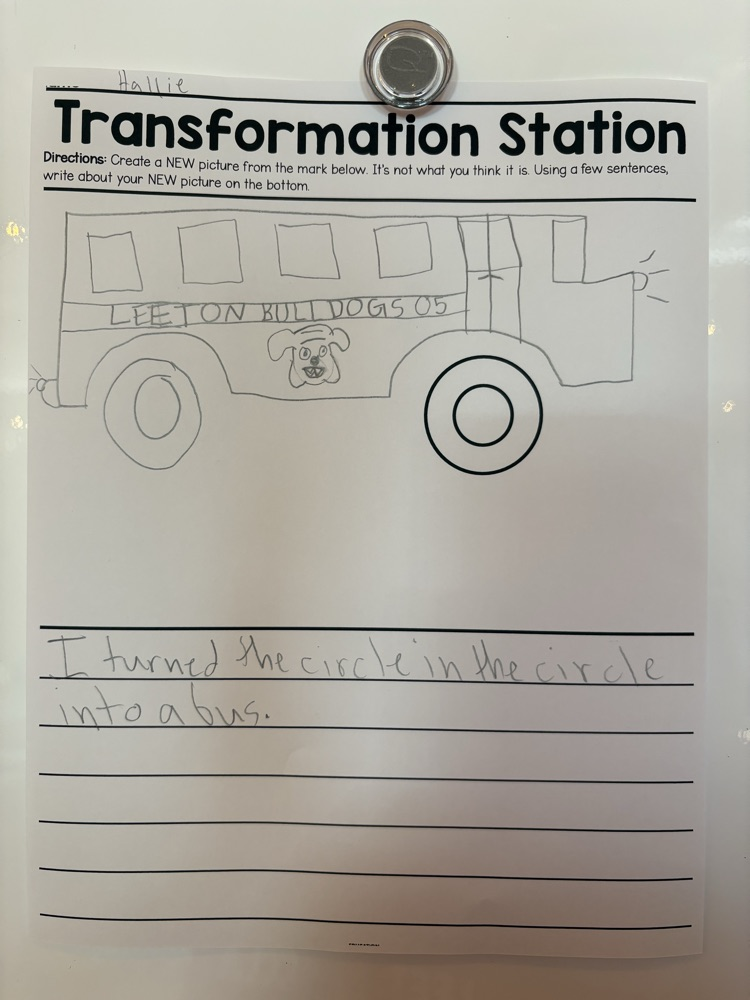 Hallie
Transformation Station
Directions: Create a NEW picture from the mark below. It's not what you think it is. Using a few sentences,
write about your NEW picture on the bottom.
LEETON BULLDOGS 05
I turned the circle in the circle
into a bus.